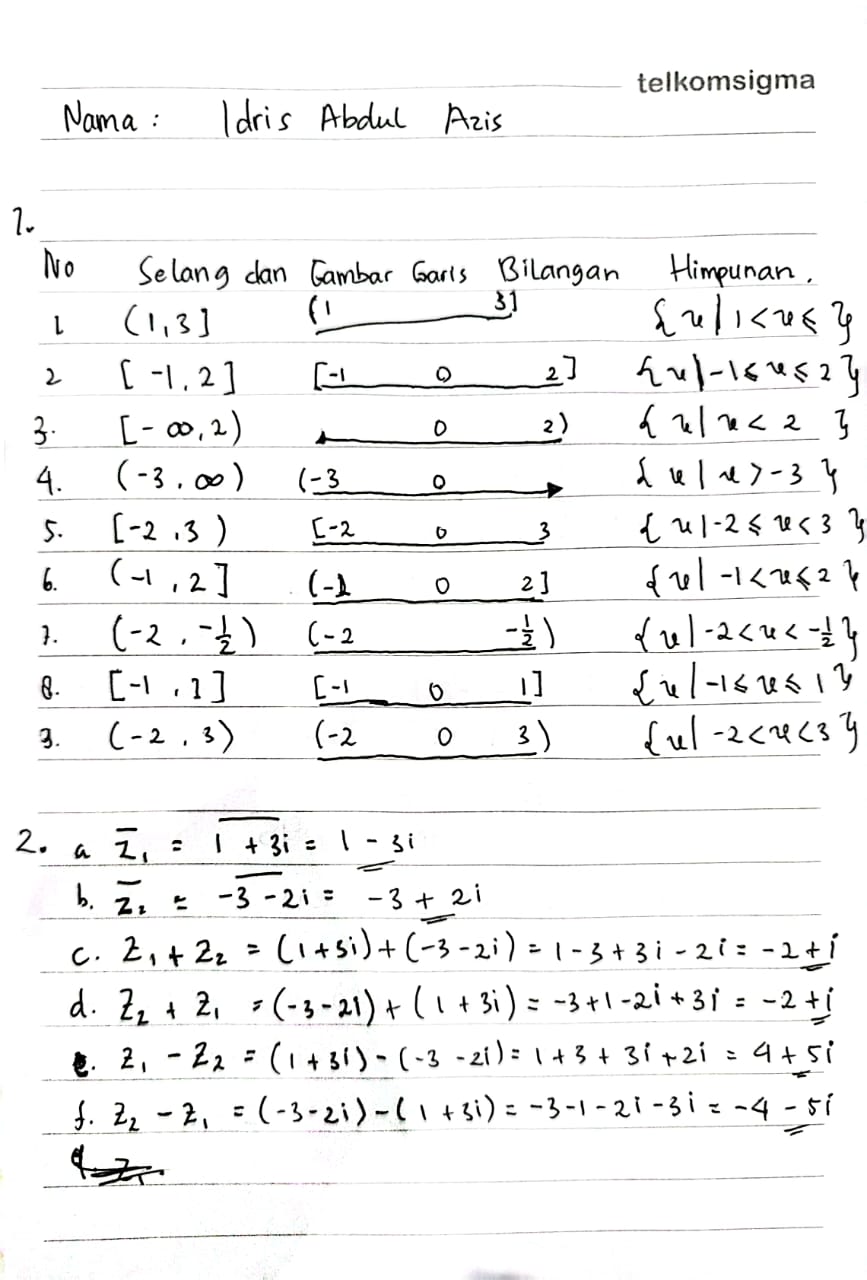 telkomsigma
Nama : Idris Abdul Azis
1.
No Selang dan Gambar Garis Bilangan Himpunan.
1 (1,3] (1 3] {x|1<x≤ }
2 [-1,2] [-1 0 2] {x|-1≤x≤2}
3. [-∞,2) 0 2) {x|x<2 }
4. (-3,∞) (-3 0 {x|x>-3}
5. [-2,3) [-2 0 3 {x|-2≤x<3}
6. (-1,2] (-1 0 2] {x|-1<x≤2}
7. (-2,-1/2) (-2 -1/2) {x|-2<x<-1/2}
8. [-1,1] [-1 0 1] {x|-1≤x≤1}
9. (-2,3) (-2 0 3) {x|-2<x<3}
2. a z̄₁ = 1 + 3i = 1 - 3i
b. z̄₂ = -3 - 2i = -3 + 2i
c. Z₁ + Z₂ = (1+3i)+(-3-2i) = 1-3+3i-2i = -2+i
d. Z₂ + Z₁ = (-3-2i)+(1+3i) = -3+1-2i+3i = -2+i
e. Z₁ - Z₂ = (1+3i)-(-3-2i) = 1+3+3i+2i = 4+5i
f. Z₂ - Z₁ = (-3-2i)-(1+3i) = -3-1-2i-3i = -4-5i